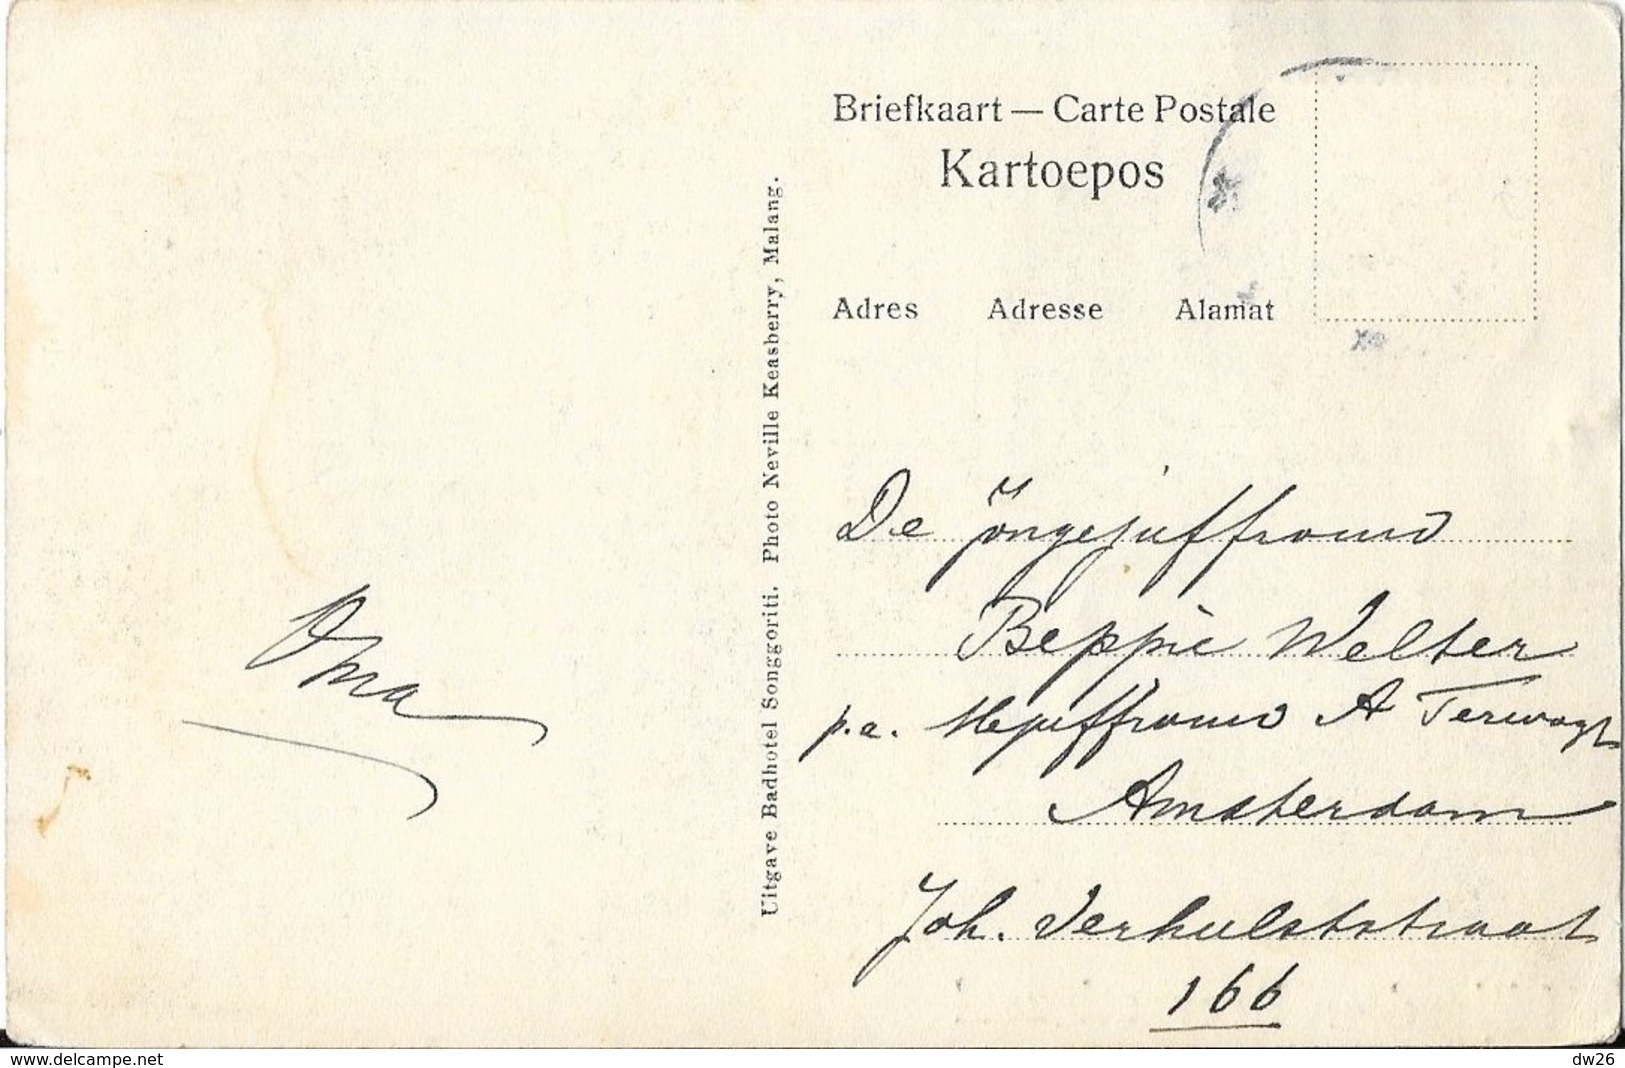 Briefkaart — Carte Postale
Kartoepos
Adres Adresse Alamat
Uitgave Badhotel Songgoriti. Photo Neville Keasberry, Malang.
Oma
De Jongejuffrouw
Beppie Welter
p.a. Mejuffrouw A Terwogt
Amsterdam
Joh. Verhulststraat
166
www.delcampe.net
dw26